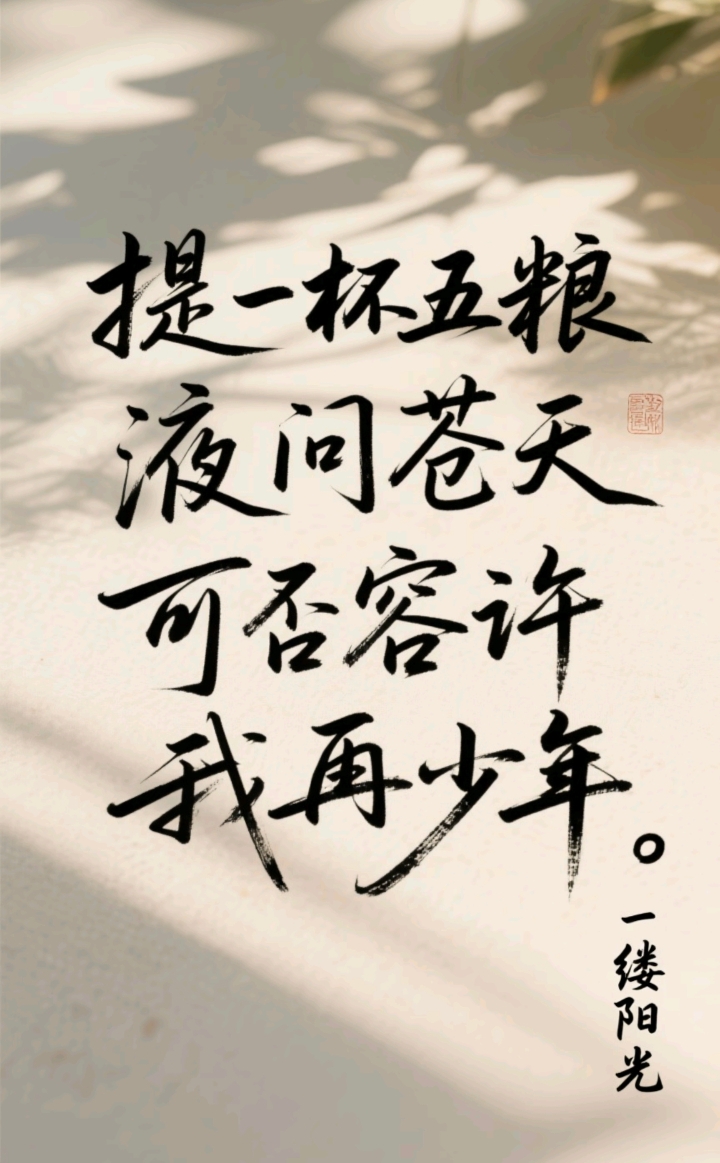 提一杯五粮
液问苍天
可否容许
我再少年。
一缕阳光